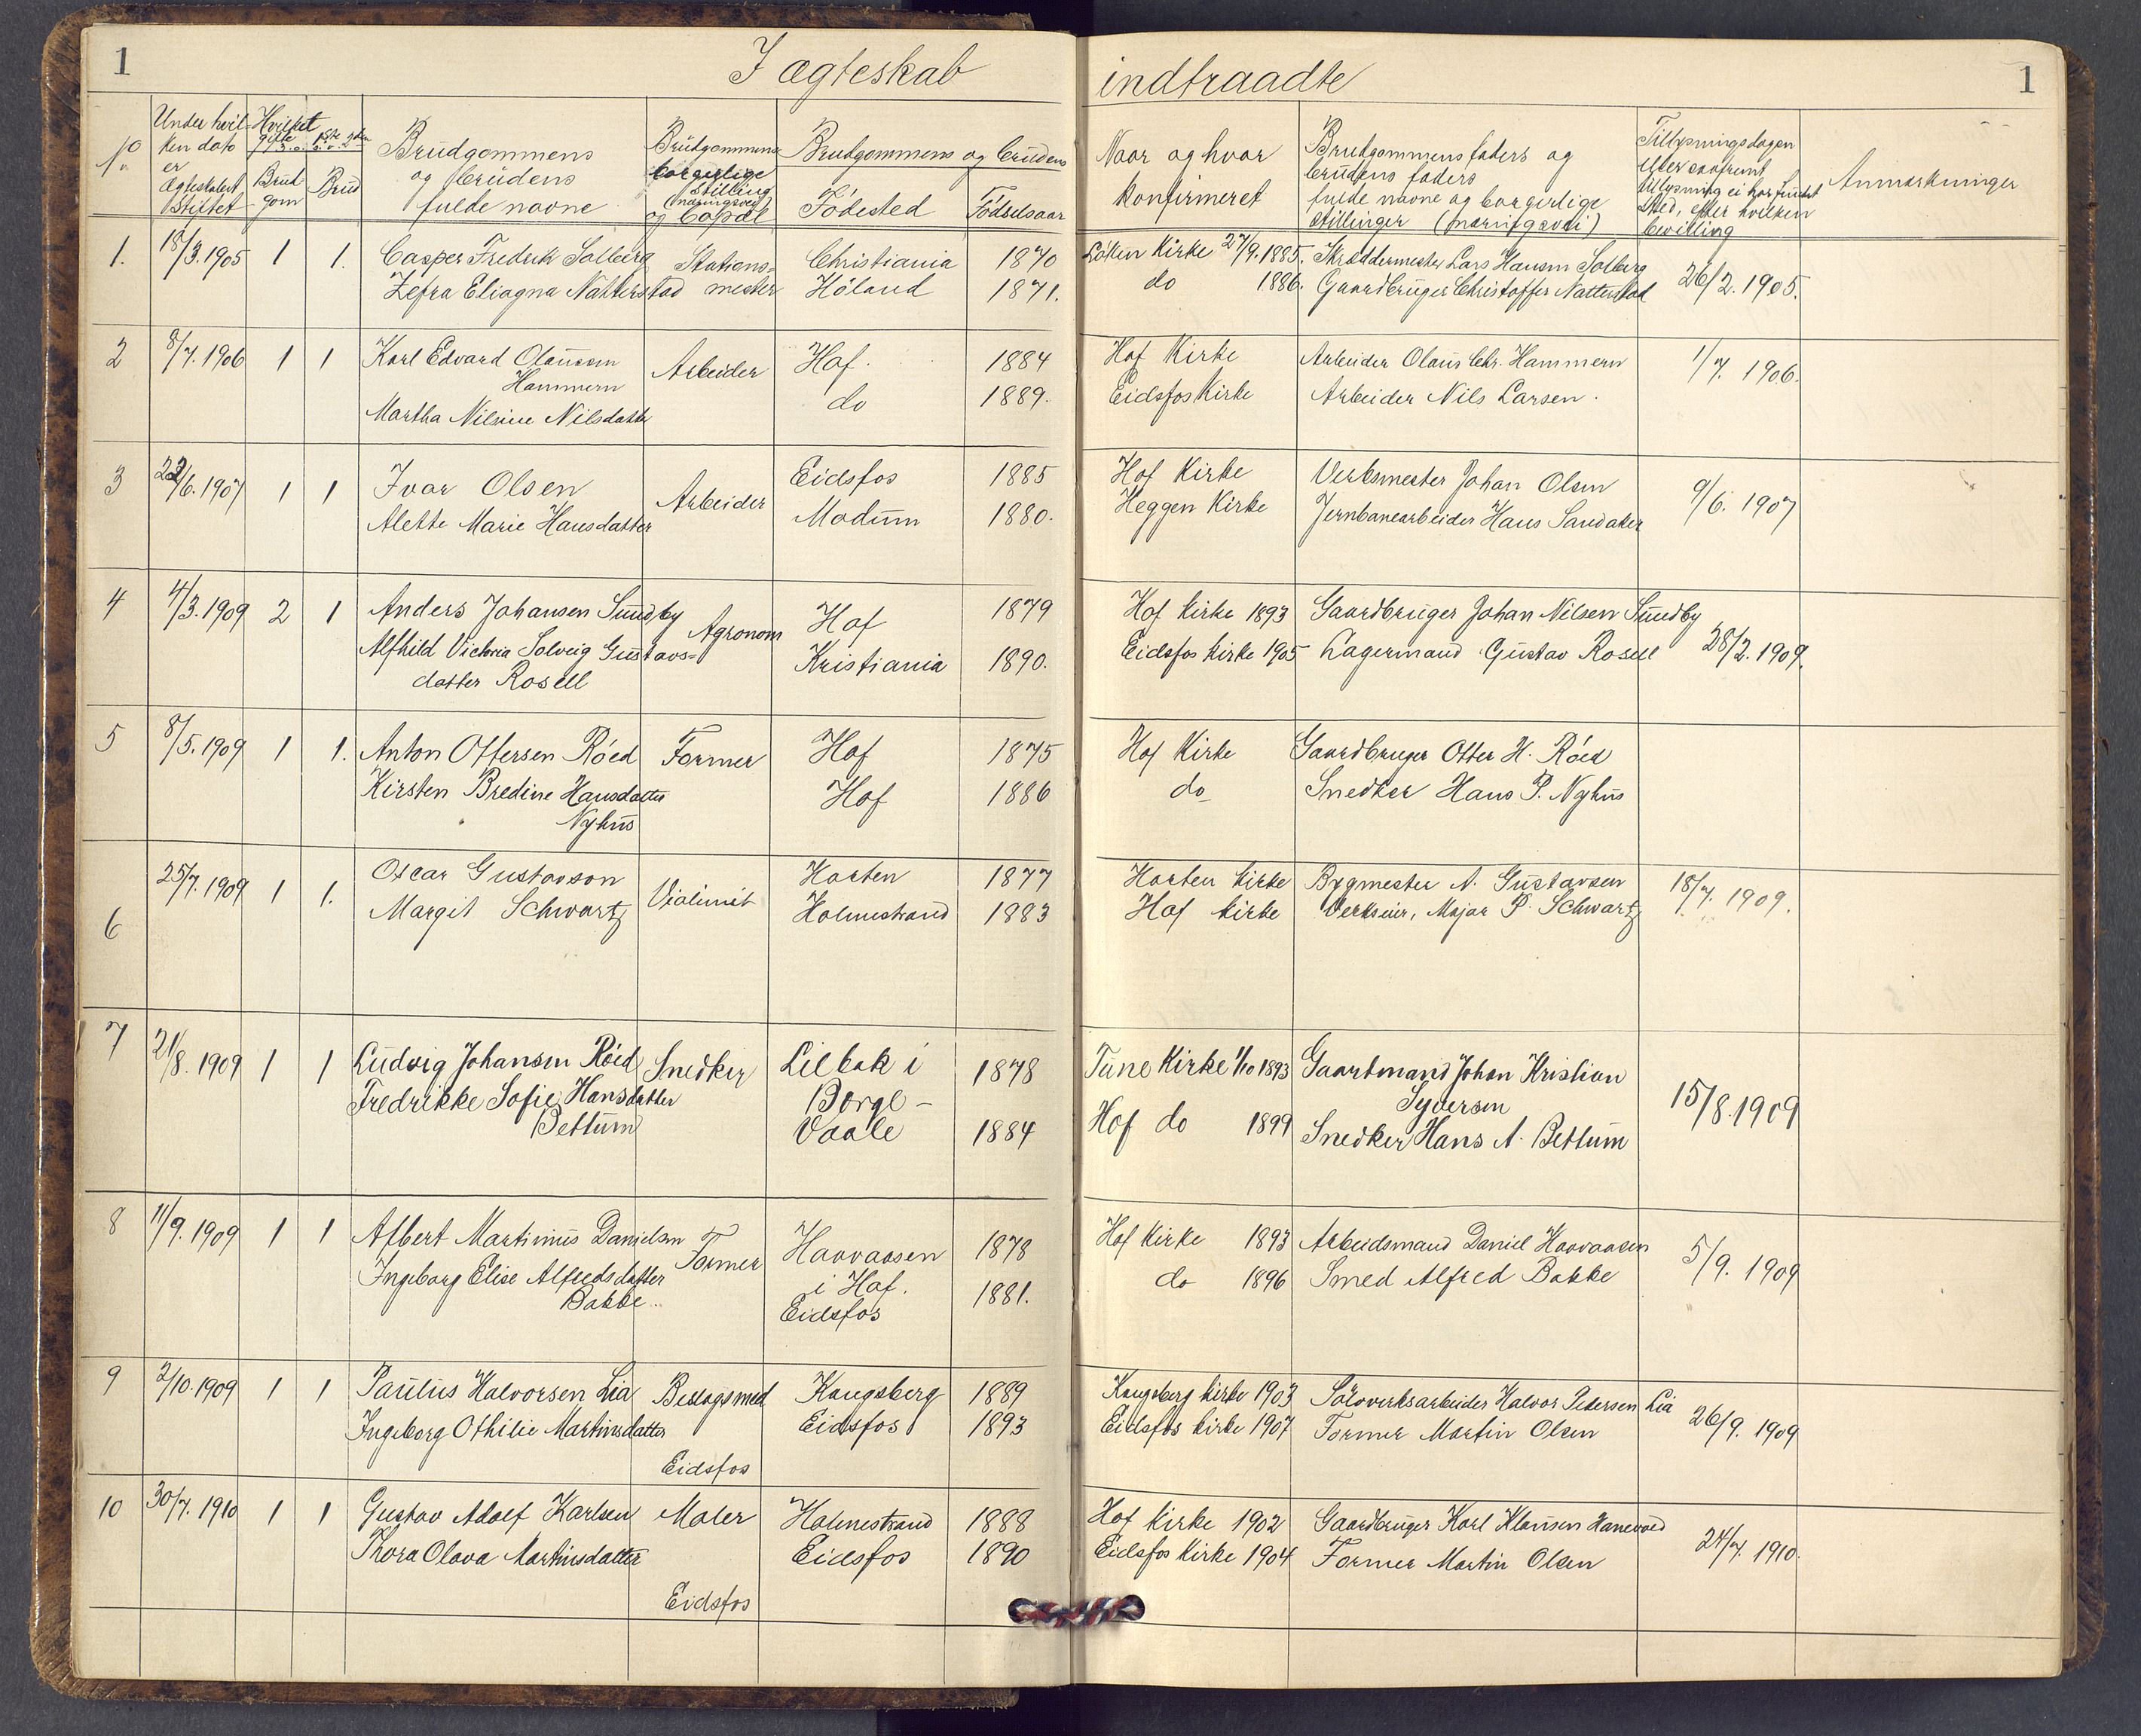 1
I ægteskab
indtraadte
1
No
Under hvil-
ken dato
er
Ægteskabet
Stiftet
Hvilket
gifte
Brud
gom
Brud
Brudgommens
og brudens
fulde navne
Brudgommens
borgerlige
Stilling
(næringsvei)
og bopæl
Brudgommens og brudens
Födested
Födselsaar
Naar og hvor
konfirmeret
Brudgommens faders og
brudens faders
fulde navne og borgerlige
stillinger (næringsvei)
Tillysningsdagen
eller saafremt
tillysning ei har fundet
sted, efter hvilken
bevilling
Anmærkninger
1. 18/3.1905 1 1. Casper Fredrik Solberg Stations- Christiania 1870 Löken Kirke 27/9.1885. Skræddermester Lars Hansen Solberg 26/2.1905.
Zefra Eliagna Natterstad mester Höland 1871. do 1886. Gaardbruger Christoffer Natterstad
2 8/7.1906 1 1 Karl Edvard Olausen Arbeider Hof. 1884 Hof Kirke Arbeider Olaus Chr. Hammern 1/7. 1906.
Hammern
Martha Nilsine Nilsdatter do 1889. Eidsfos Kirke Arbeider Nils Larsen.
3 22/6.1907 1 1 Ivar Olsen Arbeider Eidsfos 1885 Hof Kirke Verksmester Johan Olsen 9/6. 1907
Alette Marie Hansdatter Modum 1880. Heggen Kirke Jernbanearbeider Hans Sandaker
4 4/3.1909 2 1 Anders Johansen Sundby Agronom Hof 1879 Hof Kirke 1893 Gaardbruger Johan Nilsen Sundby 28/2.1909.
Alfhild Victoria Solveig Gustavs- Kristiania 1890. Eidsfos Kirke 1905 Lagermand Gustav Rosell
datter Rosell
5 8/5.1909 1 1. Anton Ottersen Röed Former Hof 1875 Hof Kirke Gaardbruger Otter H. Röed
Kirsten Bredine Hansdatter Hof 1886 do Snedker Hans P. Nyhus
Nyhus
6 25/7.1909 1 1. Oscar Gustavson Violinist Horten 1877 Horten Kirke Bygmester A. Gustavsen 18/7. 1909.
Margit Schwartz Holmestrand 1883 Hof Kirke Verkseier, Major P. Schwartz
7 21/8.1909 1 1 Ludvig Johansen Röed Snedker Lilbæk i 1878 Tune Kirke 1/10 1893 Gaardmand Johan Kristian 15/8.1909
Fredrikke Sofie Hansdatter Borge- Syversen
Bettum Vaale 1884 Hof do 1899 Snedker Hans A. Bettum
8 11/9.1909 1 1 Albert Martinius Danielsen Former Haavaasen 1878 Hof Kirke 1893 Arbeidsmand Daniel Haavaasen 5/9. 1909
Ingeborg Elise Alfredsdatter i Hof. 1881. do 1896 Smed Alfred Bakke
Bakke Eidsfos
9 2/10.1909 1 1 Paulus Halvorsen Lia Beslagsmed Kongsberg 1889 Kongsberg Kirke 1903 Sölvverksarbeider Halvor Pedersen Lia 26/9. 1909
Ingeborg Othilie Martinsdatter Eidsfos 1893 Eidsfos Kirke 1907 Former Martin Olsen
Eidsfos
10 30/7.1910 1 1 Gustav Adolf Karlsen Maler Holmestrand 1888 Hof Kirke 1902 Gaardbruger Karl Klausen Hanevold 24/7. 1910.
Thora Olava Martinsdatter Eidsfos 1890 Eidsfos Kirke 1904 Former Martin Olsen
Eidsfos